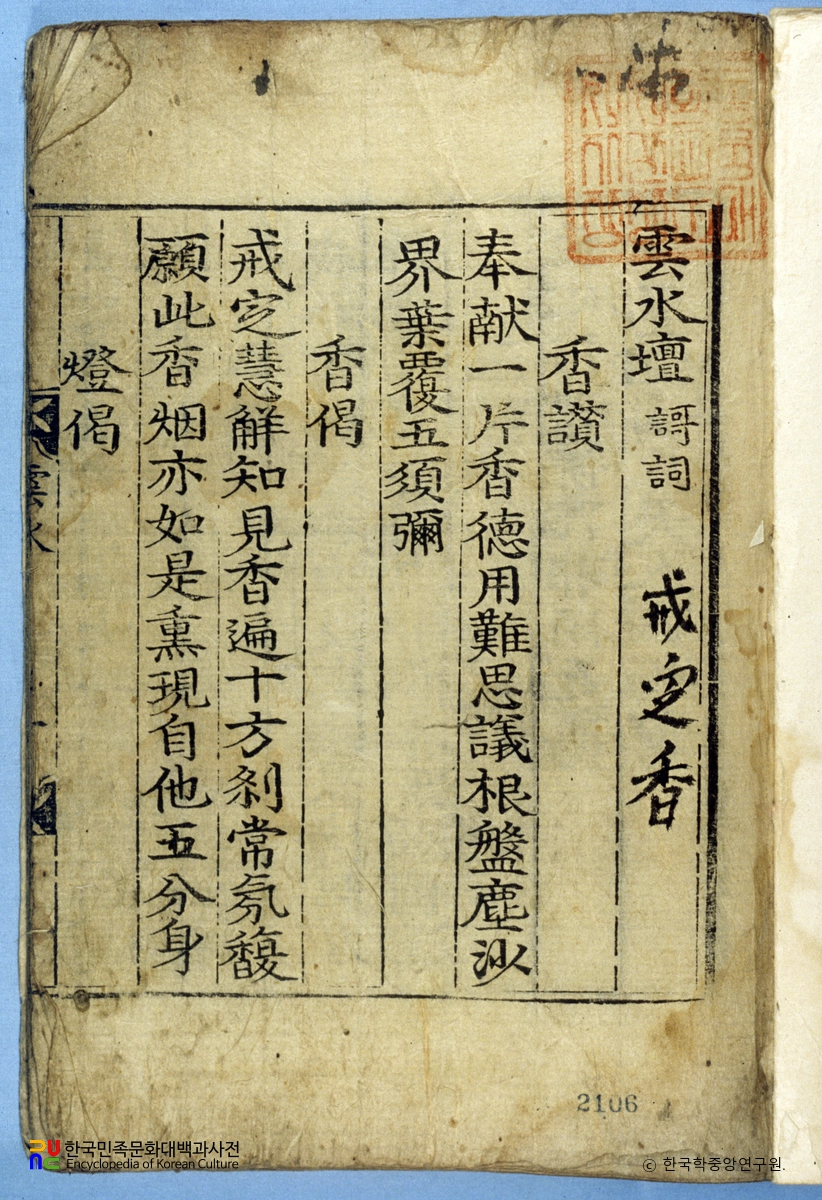 雲水壇 謌詞 戒定香
香讚
奉献一片香德用難思議根盤塵沙
界葉覆五須彌
香偈
戒定慧解知見香遍十方刹常氛馥
願此香烟亦如是熏現自他五分身
燈偈
雲水
2106
한국민족문화대백과사전
Encyclopedia of Korean Culture
© 한국학중앙연구원